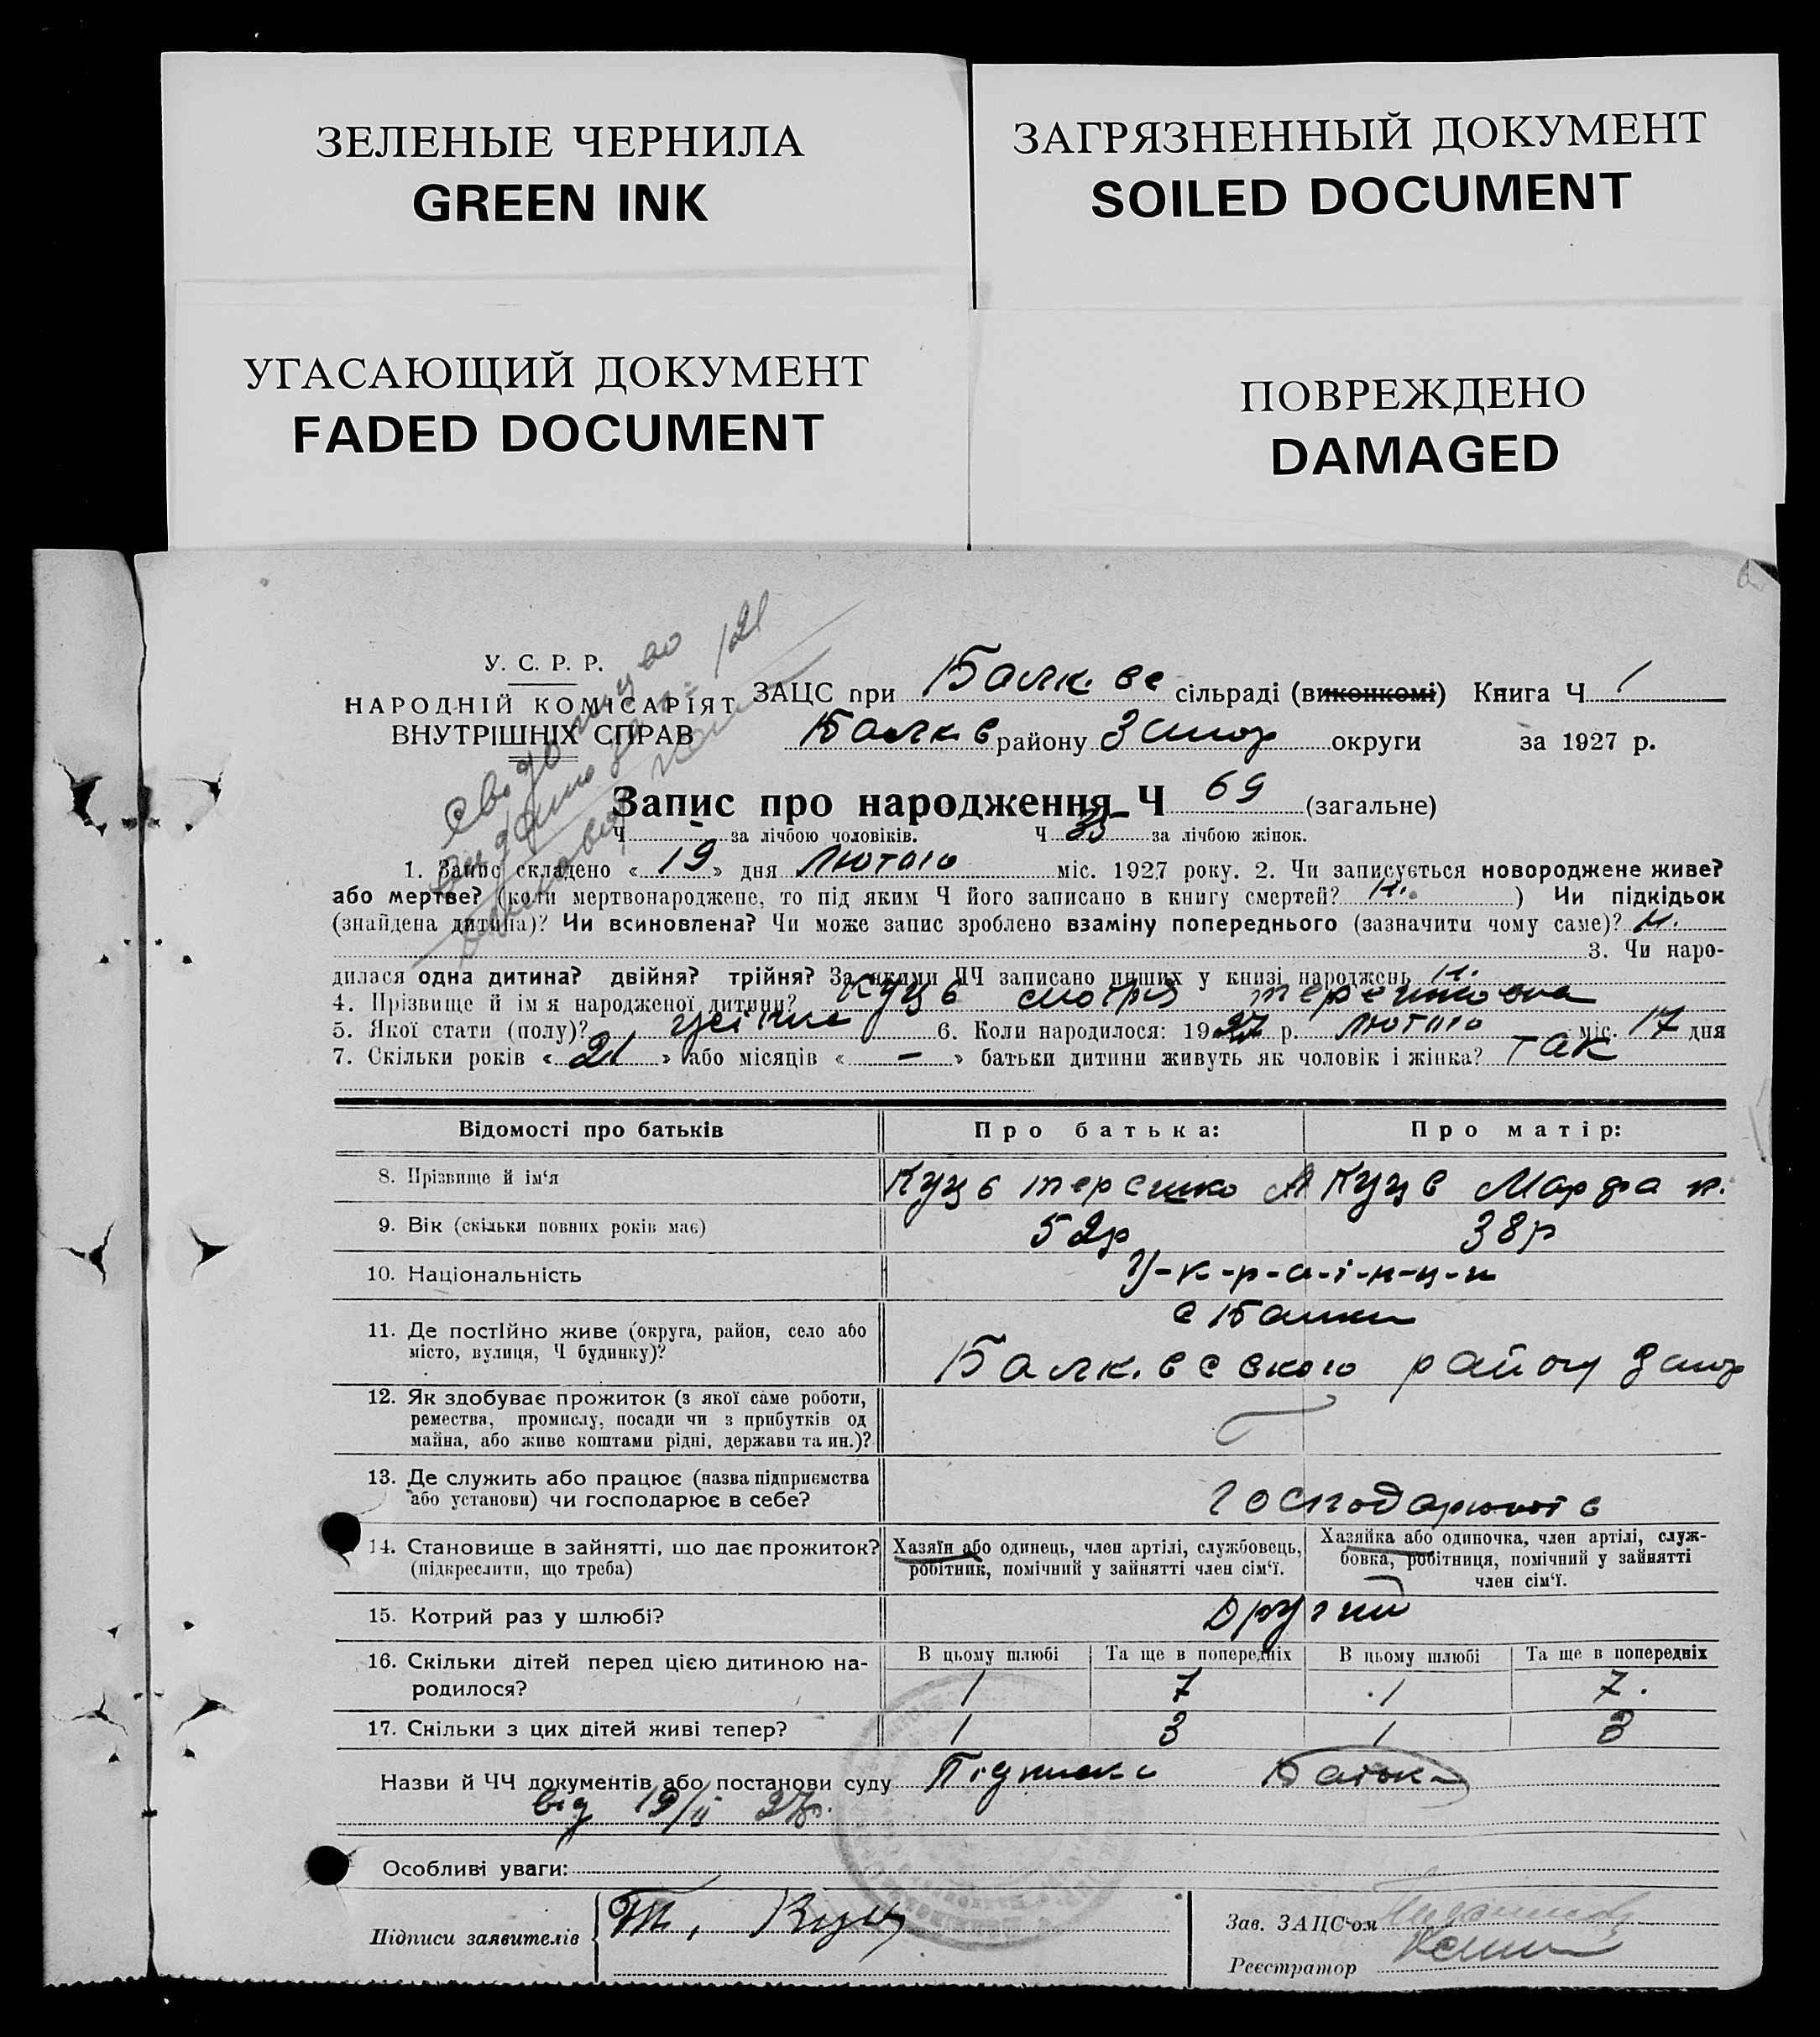 ЗЕЛЕНЫЕ ЧЕРНИЛА
GREEN INK
ЗАГРЯЗНЕННЫЙ ДОКУМЕНТ
SOILED DOCUMENT
УГАСАЮЩИЙ ДОКУМЕНТ
FADED DOCUMENT
ПОВРЕЖДЕНО
DAMAGED
У. С. Р. Р.
НАРОДНІЙ КОМІСАРІЯТ
ВНУТРІШНІХ СПРАВ
ЗАЦС при сільраді (виконкомі) Книга Ч 1
району Запор округи за 1927 р.
Запис про народження Ч 69 (загальне)
Ч - за лічбою чоловіків. Ч 35 за лічбою жінок.
1. Запис складено « 19 » дня Лютого міс. 1927 року. 2. Чи записується новороджене живе?
або мертве? (коли мертвонароджене, то під яким Ч його записано в книгу смертей? н. ) Чи підкідьок
(знайдена дитина)? Чи всиновлена? Чи може запис зроблено взаміну попереднього (зазначити чому саме)? н.
3. Чи наро-
дилася одна дитина? двійня? трійня? За якими ЧЧ записано инших у книзі народжень н.
4. Прізвище й ім'я народженої дитини? Куць мотря терешковна
5. Якої стати (полу)? жіноче 6. Коли народилося: 1927 р. Лютого міс. 17 дня
7. Скільки років « 21 » або місяців « — » батьки дитини живуть як чоловік і жінка? Так
Відомості про батьків
Про батька:
Про матір:
8. Прізвище й ім'я
Куць терешко А
Куць Марфа н.
9. Вік (скільки повних років має)
52р
38р
10. Національність
У-к-р-а-ї-н-ц-и
11. Де постійно живе (округа, район, село або
місто, вулиця, Ч будинку)?
с Балки
району Запор
12. Як здобуває прожиток (з якої саме роботи,
ремества, промислу, посади чи з прибутків од
майна, або живе коштами рідні, держави та ин.)?
13. Де служить або працює (назва підприємства
або установи) чи господарює в себе?
господарюют в
14. Становище в зайнятті, що дає прожиток?
(підкреслити, що треба)
Хазяїн або одинець, член артілі, службовець,
робітник, помічний у зайнятті член сім'ї.
Хазяйка або одиночка, член артілі, служ-
бовка, робітниця, помічний у зайнятті
член сім'ї.
15. Котрий раз у шлюбі?
Другий
16. Скільки дітей перед цією дитиною на-
родилося?
В цьому шлюбі
Та ще в попередніх
В цьому шлюбі
Та ще в попередніх
1 7 1 7.
17. Скільки з цих дітей живі тепер?
1 3 1 3
Назви й ЧЧ документів або постанови суду Підписка Батька
від 19/ІІ 27р.
Особливі уваги:
Підписи заявителів
Т. Куць
Зав. ЗАЦС'ом
Реєстратор